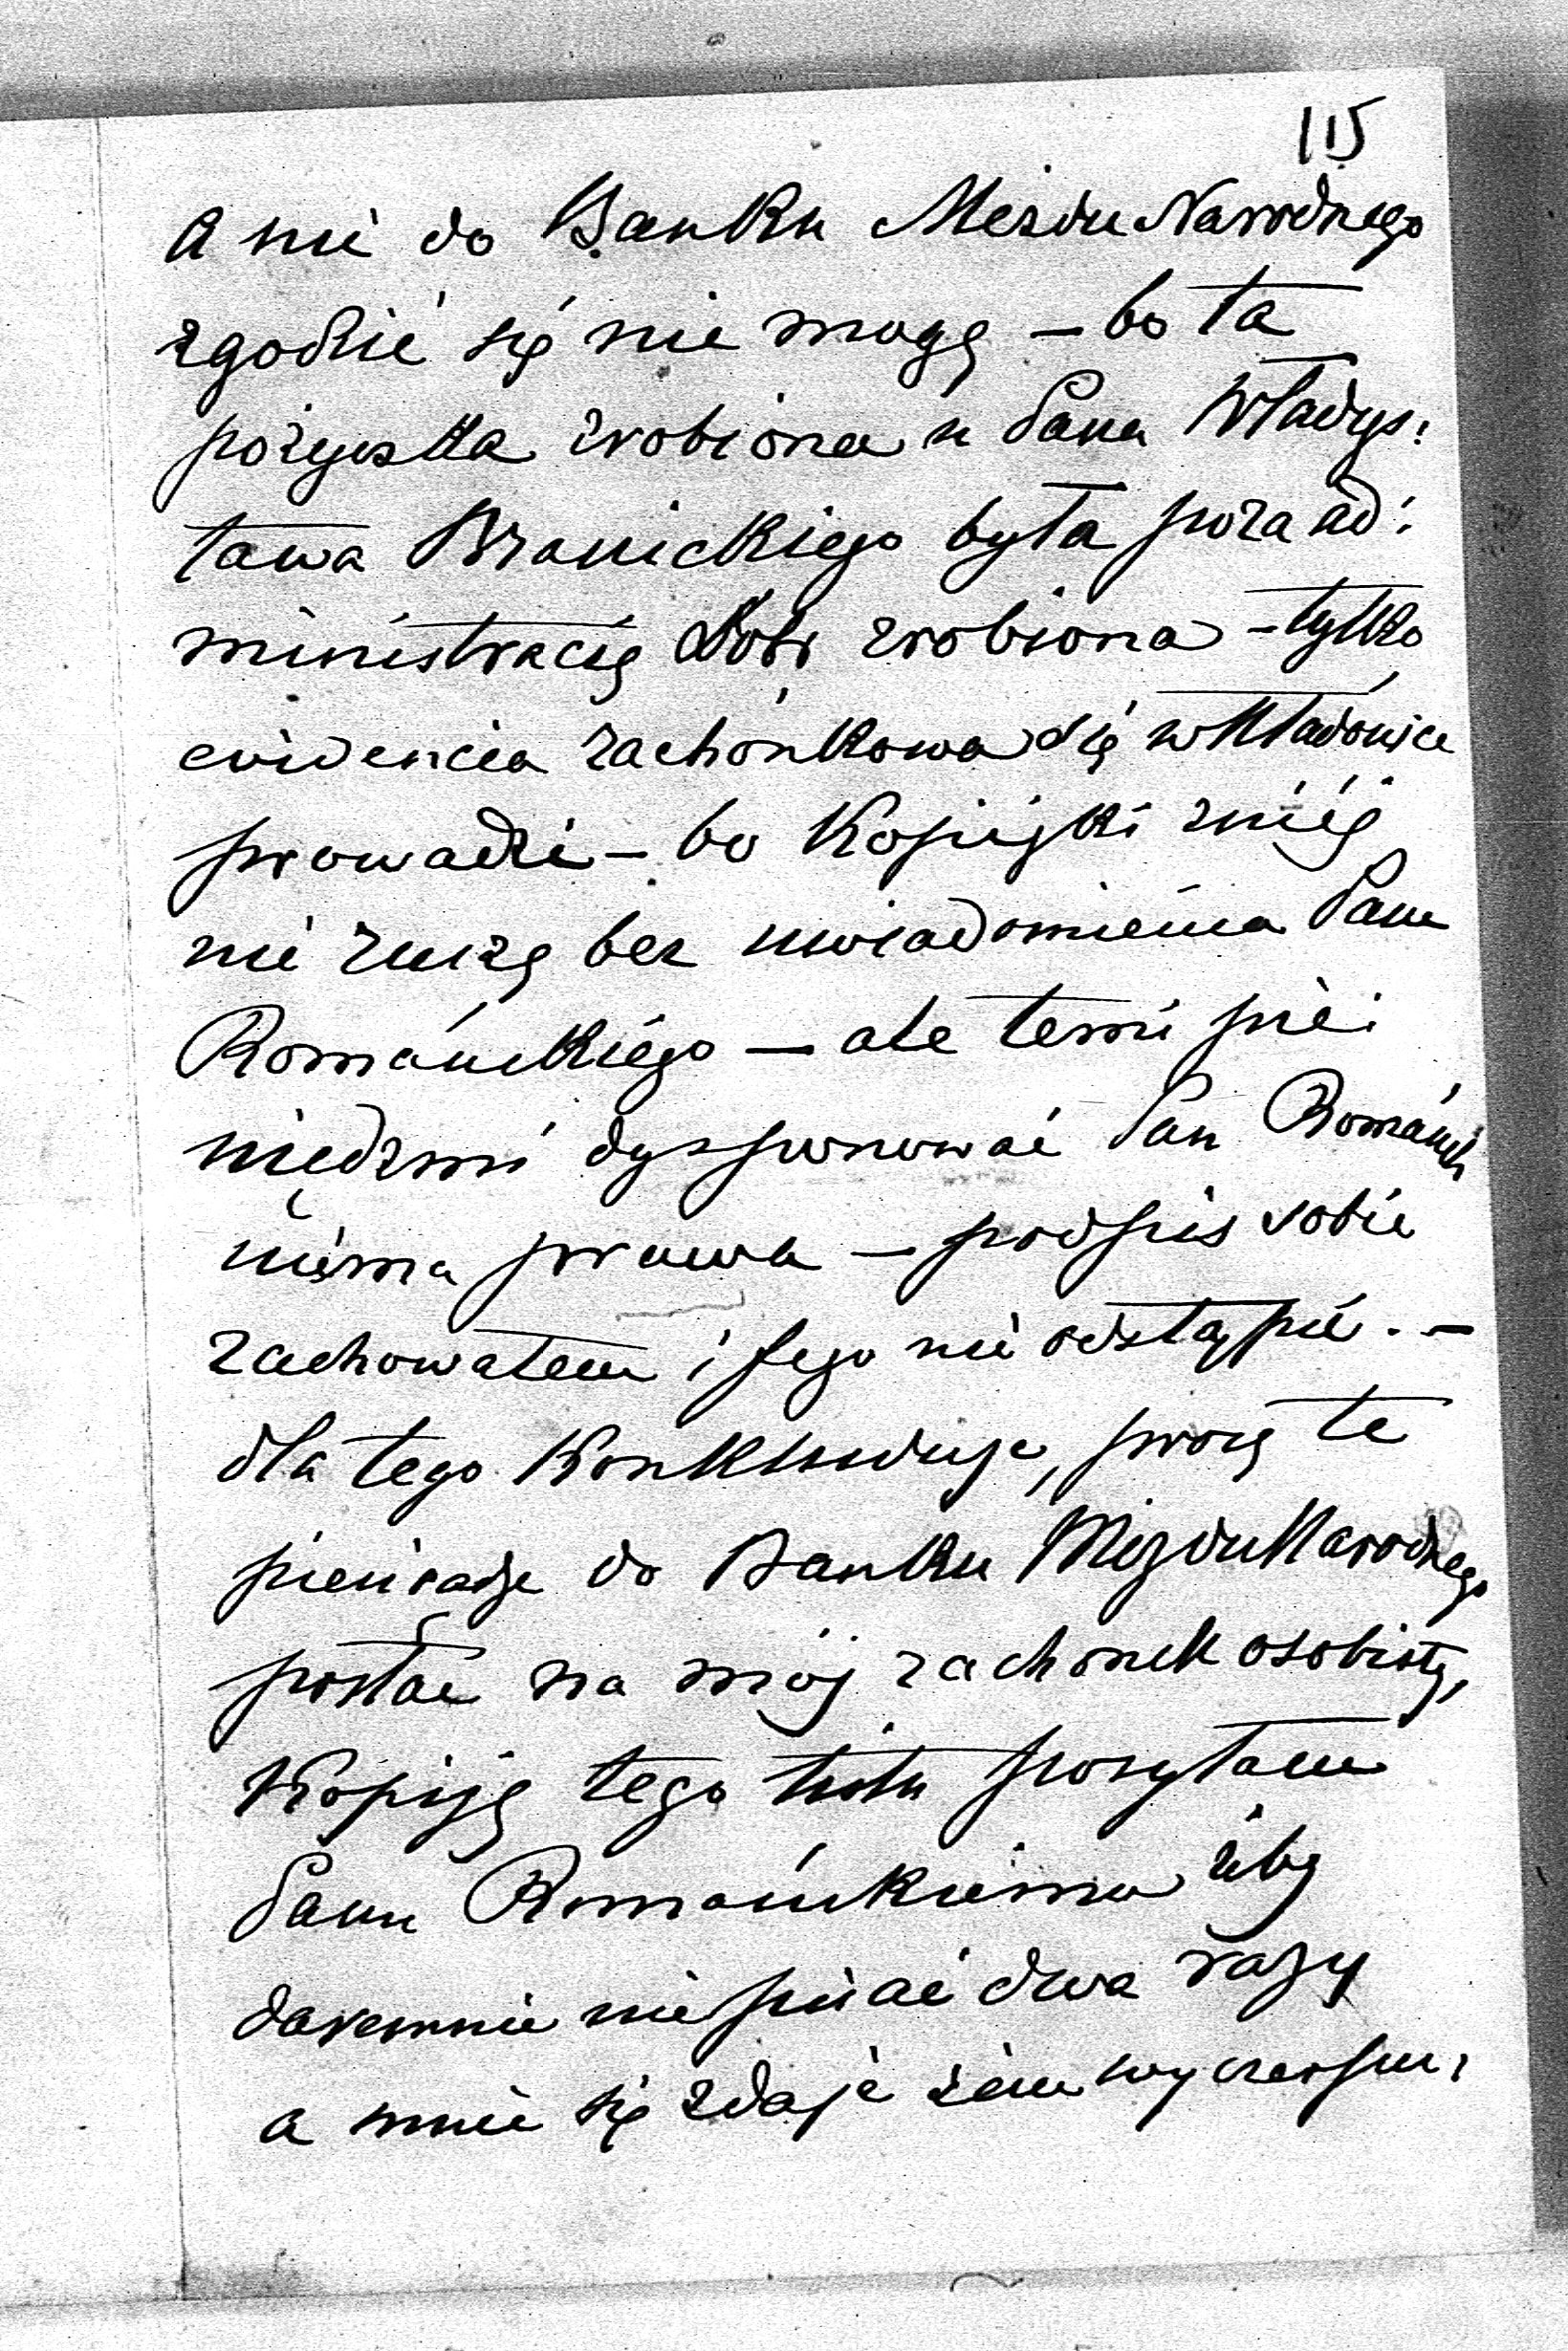 115
A nie do Banku MezduNarodnego
zgodzić się nie mogę – bo ta
pożyczka zrobiona u Pana Władys:
ława Branickiego była poza ad:
ministracją Dóbr zrobiona – tylko
evidencia rachónkowa się w Kładówice
prowadzi – bo Kopiejki z niéj
nie ruszę bez uwiadomienia Pana
Románskiégo – ale temi pie:
niędzmi dyssponować Pan Románsk
niéma prawa – podpis sobie
zachowałem i Jego nie odstąpię. –
dla tego Konkluduje, proszę te
pieniądze do Banku MiezduNarodnego
posłać na mój rachonek osobisty,
Kopiję tego listu posyłam
Panu Románskiemu żeby
daremnie nie pisać dwa razy
a mnie się zdaje żem wyczerpu,